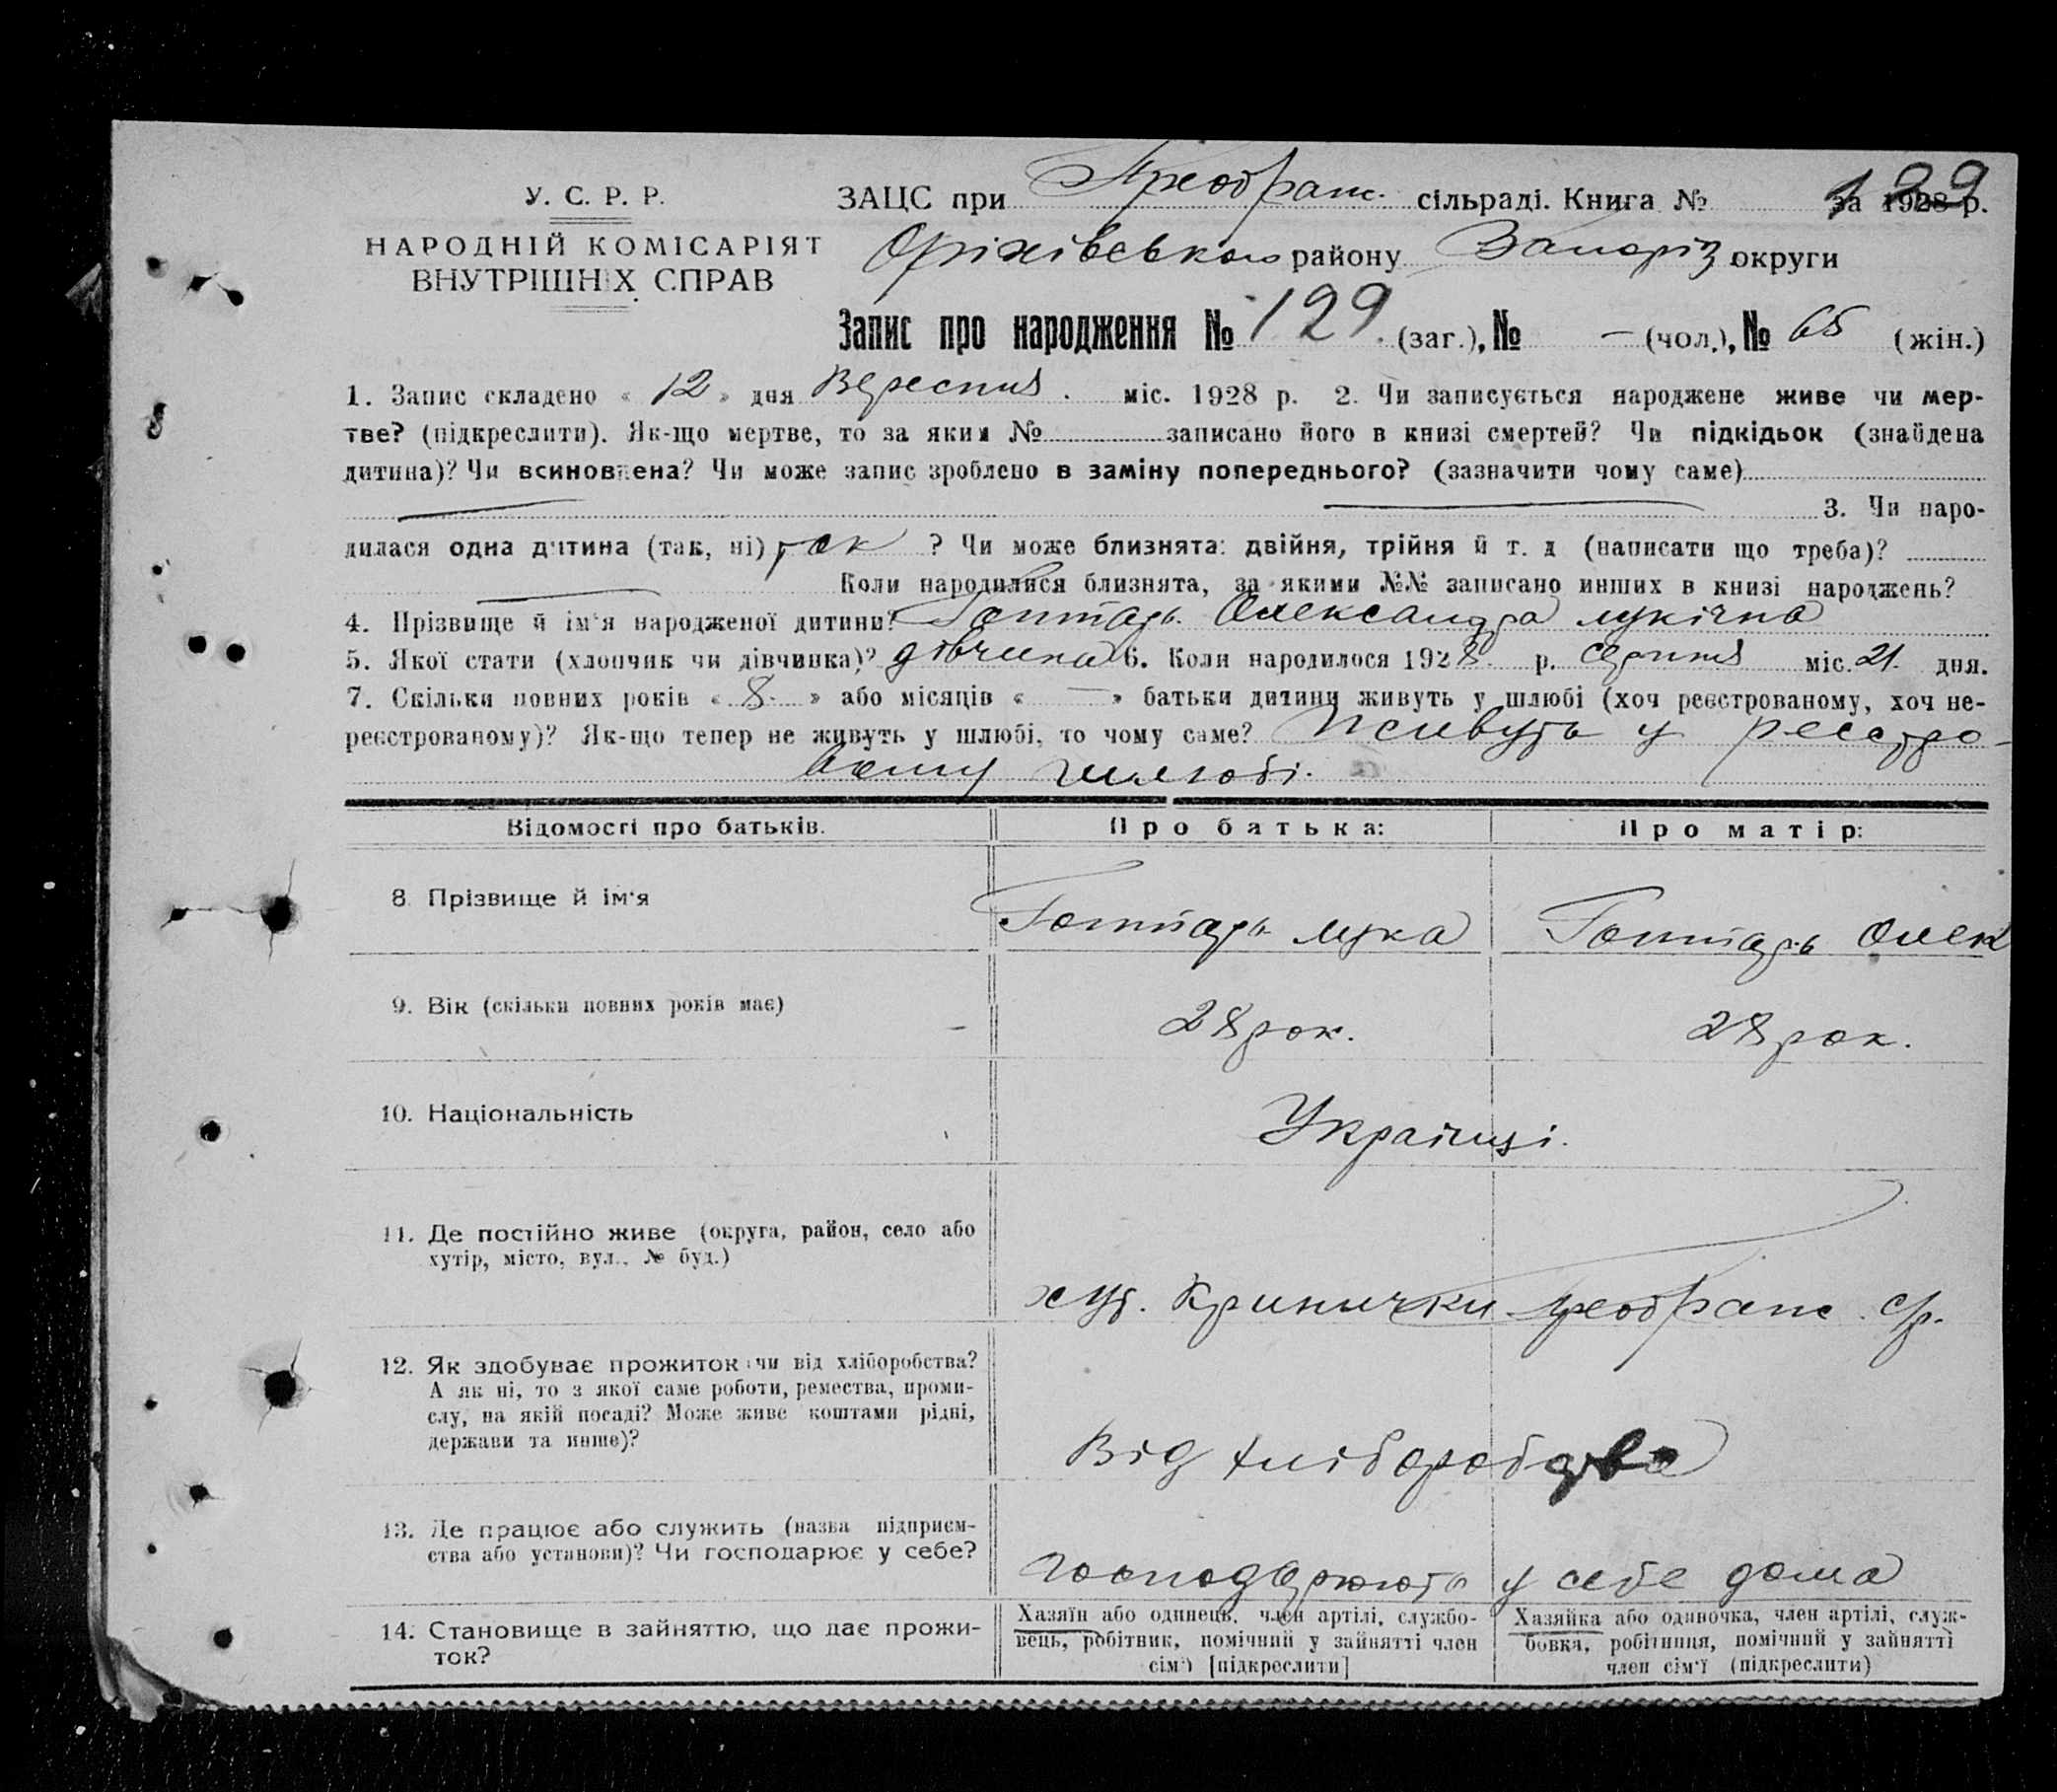 129
У. С. Р. Р.
ЗАЦС при Преображ. сільраді. Книга № за 1928 р.
НАРОДНІЙ КОМІСАРІЯТ
ВНУТРІШНІХ СПРАВ
Оріхівського району Запоріз округи
Запис про народження № 129 (заг.), № — (чол.), № 65 (жін.)
1. Запис складено « 12 » дня Вересния . міс. 1928 р. 2. Чи записується народжене живе чи мер-
тве? (підкреслити). Як-що мертве, то за яким № записано його в книзі смертей? Чи підкідьок (знайдена
дитина)? Чи всиновлена? Чи може запис зроблено в заміну попереднього? (зазначити чому саме)
3. Чи наро-
дилася одна дитина (так, ні) так ? Чи може близнята: двійня, трійня й т. д (написати що треба)?
Коли народилися близнята, за якими №№ записано инших в книзі народжень?
4. Прізвище й ім'я народженої дитини? Гоптарь Олександра Лукічна
5. Якої стати (хлопчик чи дівчинка)? дівчина 6. Коли народилося 1928 р. серпня міс. 21 дня.
7. Скільки повних років « 8 » або місяців « — » батьки дитини живуть у шлюбі (хоч реєстрованому, хоч не-
реєстрованому)? Як-що тепер не живуть у шлюбі, то чому саме? Живуть у реестро-
ваму шлюбі.
Відомості про батьків. Про батька: Про матір:
8 Прізвище й ім'я Гоптарь Лука Гоптарь Олек
9. Вік (скільки повних років має) 28 рок. 28 рок.
10. Національність Українці.
11. Де постійно живе (округа, район, село або
хутір, місто, вул., № буд.)
хут. Кринички Преображ. с/р.
12. Як здобуває прожиток: чи від хліборобства?
А як ні, то з якої саме роботи, ремества, проми-
слу, на якій посаді? Може живе коштами рідні,
держави та инше)?
Від хліборобства
13. Де працює або служить (назва підприєм-
ства або установи)? Чи господарює у себе?
Господарюють у себе дома
14. Становище в зайняттю, що дає прожи-
ток?
Хазяїн або одинець, член артілі, службо-
вець, робітник, помічний у зайнятті член
сім'ї [підкреслити]
Хазяйка або одиночка, член артілі, служ-
бовка, робітниця, помічний у зайнятті
член сім'ї (підкреслити)